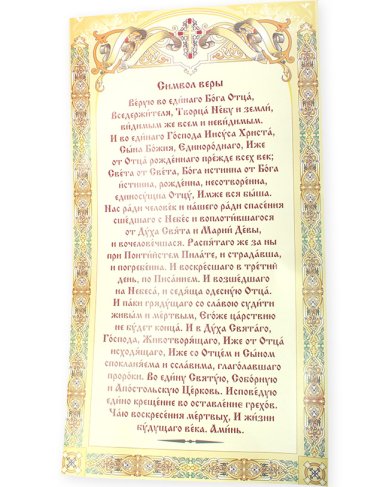 Символ веры
Ве́рую во еди́наго Бо́га Отца́,
Вседержи́теля, Творца́ Не́бу и земли́,
ви́димым же всем и неви́димым.
И во еди́наго Го́спода Иису́са Христа́,
Сы́на Бо́жия, Единоро́днаго, Иже
от Отца́ рожде́ннаго пре́жде всех век;
Све́та от Све́та, Бо́га и́стинна от Бо́га
и́стинна, рожде́нна, несотворе́нна,
единосу́щна Отцу́, Имже вся бы́ша.
Нас ра́ди челове́к и на́шего ра́ди спасе́ния
сше́дшаго с Небе́с и воплоти́вшагося
от Ду́ха Свя́та и Мари́и Де́вы,
и вочелове́чшася. Распя́таго же за ны
при Понти́йстем Пила́те, и страда́вша,
и погребе́нна. И воскре́сшаго в тре́тий
день, по Писа́нием. И возше́дшаго
на Небеса́, и седя́ща одесну́ю Отца́.
И па́ки гряду́щаго со сла́вою суди́ти
живы́м и ме́ртвым, Его́же ца́рствию
не бу́дет конца́. И в Ду́ха Свята́го,
Го́спода, Животворя́щаго, Иже от Отца́
исходя́щаго, Иже со Отце́м и Сы́ном
спокланя́ема и ссла́вима, глаго́лавшаго
проро́ки. Во еди́ну Святу́ю, Собо́рную
и Апо́стольскую Це́рковь. Испове́дую
еди́но креще́ние во оставле́ние грехо́в.
Ча́ю воскресе́ния ме́ртвых, И жи́зни
бу́дущаго ве́ка. Ами́нь.